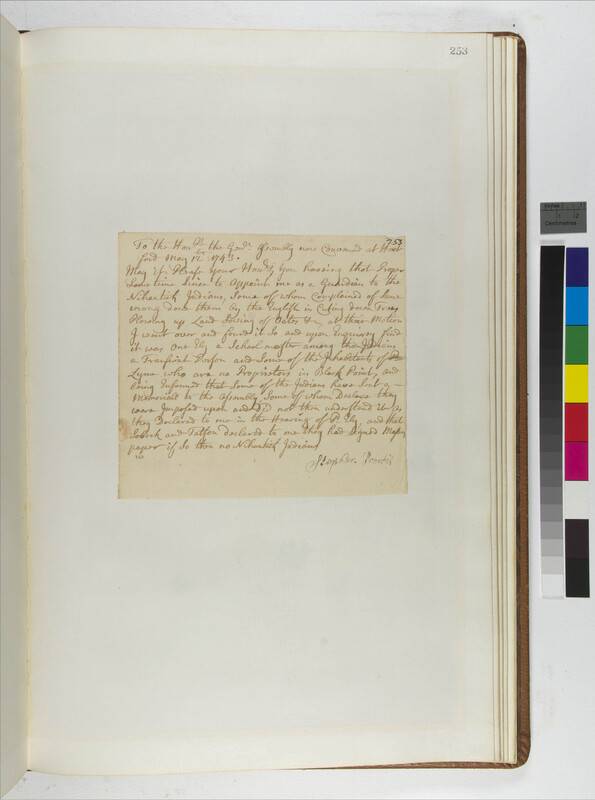 253
253
To the Honble the Genll Assembly now Convened at Hart
ford May 12th 1743.
May it Please your Honrs you haveing thot Proper
Some time Since to Appoint me as a Guardian to the
Nihantick Indians, Some of whom Complained of Some
wrong done them by the English in Cuting down Trees
Plowing up Land Soeing of Oates &c, at their Motion
I went over and found it So and upon Enquiery find
it was One Ely a School master among the Indians
a Tranciant Person and Some of the Inhabitants of
Lyme who are no Proprietors in Black Point, and
being Enformed that Some of the Indians have Sent a
Memorial to the Assembly, Some of whom Declare they
ware Imposed upon and Did not then understand it So
they Declared to me in the Hearing of Sd Ely, and that
and declared to me they had Signed
paper if So then no Nihantick Indians
Stephen Prentis